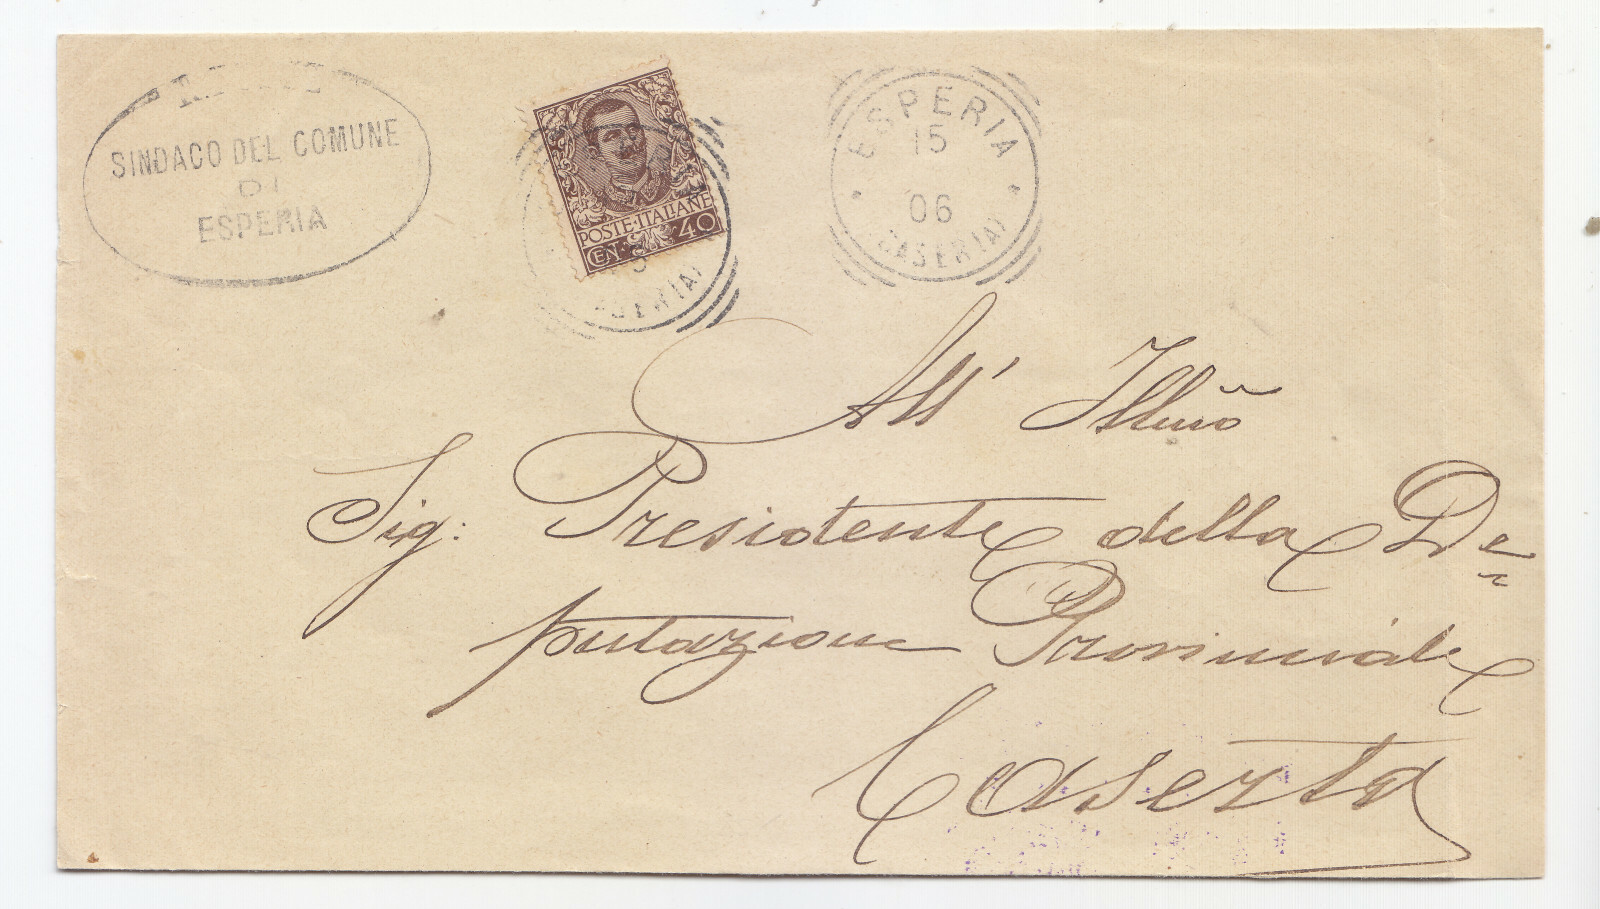 SINDACO DEL COMUNE
DI
ESPERIA
POSTE·ITALIANE
CEN. 40
ESPERIA
15
06
(CASERTA)
All' Illmõ
Sig: Presidente della De
putazione Provinciale
Caserta